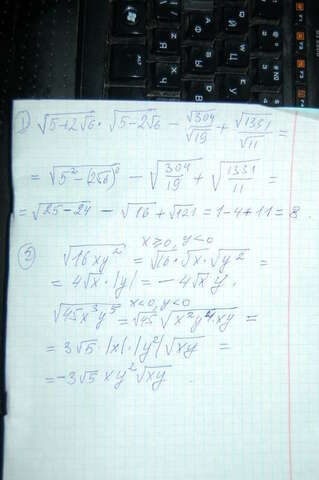 1) √5+2√6 · √5-2√6 - √304/√19 + √1331/√11 =
= √5²-(2√6)² - √304/19 + √1331/11 =
= √25-24 - √16 + √121 = 1-4+11 = 8.
2) √16xy² x≥0, y<0 = √16·√x·√y² =
= 4√x·|y| = -4√x y.
√45x³y⁵ x<0, y<0 = √45 √x²y⁴·xy =
= 3√5·|x|·|y²|√xy =
= -3√5 xy²√xy.